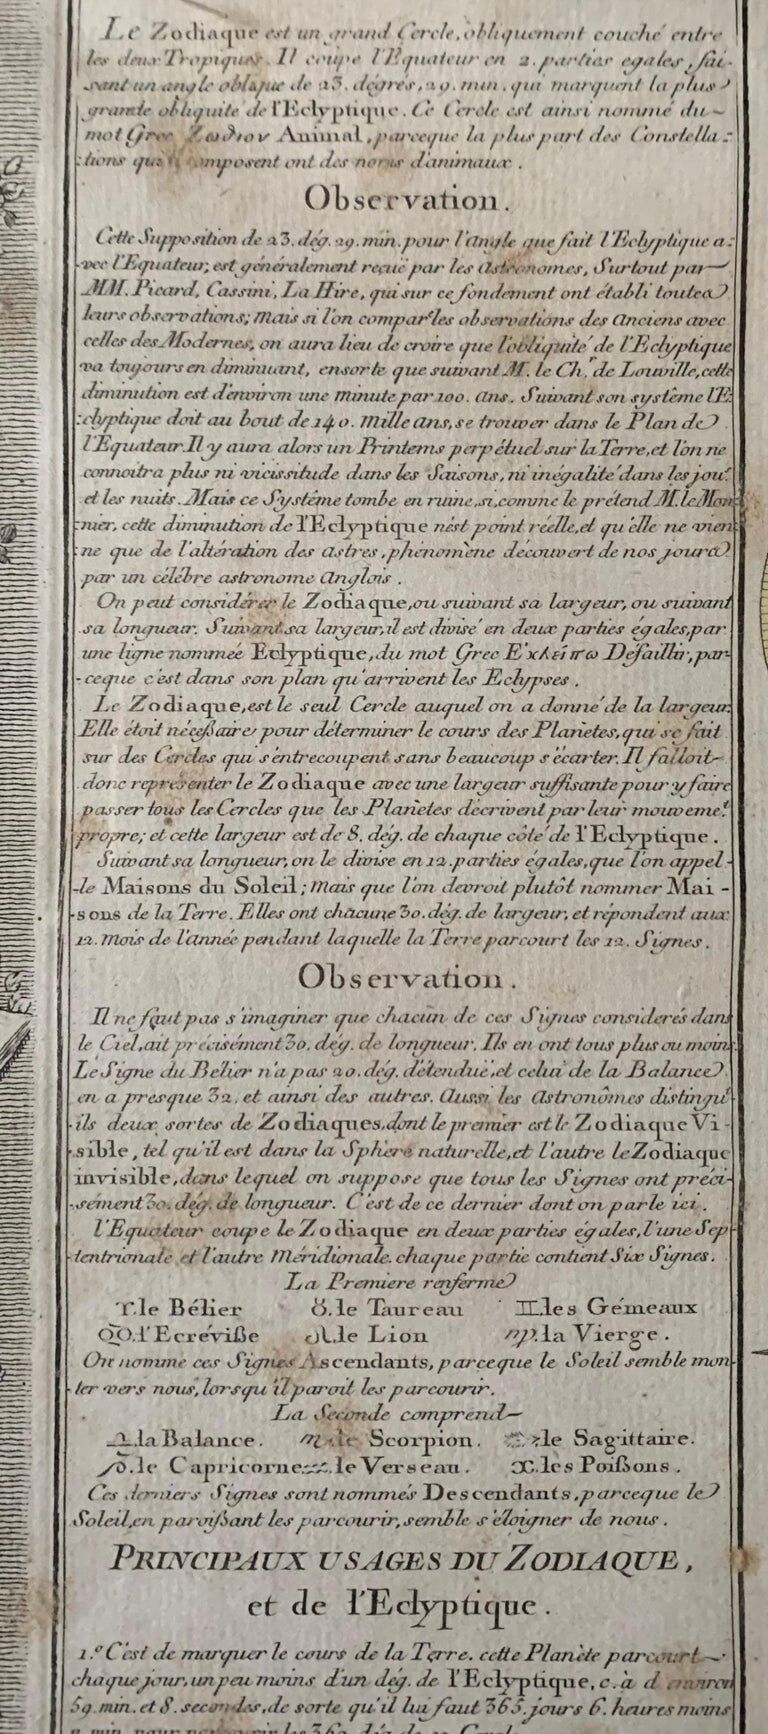 Le Zodiaque est un grand Cercle, obliquement couché entre
les deux Tropiques. Il coupe l'Equateur en 2. parties egales, fai-
sant un angle oblique de 23. dégrés, 29. min. qui marquent la plus
grande obliquité de l'Eclyptique. Ce Cercle est ainsi nommé du
mot Grec Ζωδιον Animal, parceque la plus part des Constella=
=tions qui composent ont des noms d'animaux.
Observation.
Cette Supposition de 23. dég. 29. min. pour l'angle que fait l'Eclyptique a=
-vec l'Equateur, est généralement reçuë par les astronomes, Surtout par
MM. Picard, Cassini, La Hire, qui sur ce fondement ont établi toutes
leurs observations; mais si l'on compare les observations des anciens avec
celles des Modernes, on aura lieu de croire que l'obliquité de l'Eclyptique
va toujours en diminuant, ensorte que suivant M. le Ch.r de Louville, cette
diminution est d'environ une minute par 100. ans. Suivant son systême l'E=
=clyptique doit au bout de 140. mille ans, se trouver dans le Plan de
l'Equateur. Il y aura alors un Printems perpétuel sur la Terre, et l'on ne
connoitra plus ni vicissitude dans les Saisons, ni inégalité dans les jou.rs
et les nuits. Mais ce Systême tombe en ruine, si, comme le prétend M. le Mon=
=nier, cette diminution de l'Eclyptique n'est point réelle, et qu'elle ne vien=
=ne que de l'altération des astres, phénomène découvert de nos jours
par un célébre astronome anglois.
On peut considérer le Zodiaque, ou suivant sa largeur, ou suivant
sa longueur. Suivant sa largeur, il est divisé en deux parties égales, par
une ligne nommeé Eclyptique, du mot Grec Ἐκλείπω Defaillir, par-
-ceque c'est dans son plan qu'arrivent les Eclypses.
Le Zodiaque, est le seul Cercle auquel on a donné de la largeur.
Elle étoit néceßaire pour déterminer le cours des Planetes, qui se fait
sur des Cercles qui s'entrecoupent sans beaucoup s'écarter. Il falloit
donc représenter le Zodiaque avec une largeur suffisante pour y faire
passer tous les Cercles que les Planètes décrivent par leur mouveme.t
propre; et cette largeur est de 8. dég. de chaque côté de l'Eclyptique.
Suivant sa longueur, on le divise en 12. parties égales, que l'on appel-
-le Maisons du Soleil; mais que l'on devroit plutôt nommer Mai -
-sons de la Terre. Elles ont chacune 30. dég. de largeur, et répondent aux
12. mois de l'année pendant laquelle la Terre parcourt les 12. Signes.
Observation.
Il ne faut pas s'imaginer que chacun de ces Signes considerés dans
le Ciel, ait précisément 30. dég. de longueur. Ils en ont tous plus ou moins.
Le Signe du Belier n'a pas 20. dég. d'étenduë, et celui de la Balance
en a presque 32, et ainsi des autres. Aussi les astronômes distingu-
-ils deux sortes de Zodiaques, dont le premier est le Zodiaque Vi-
-sible, tel qu'il est dans la Sphere naturelle, et l'autre le Zodiaque
invisible, dans lequel on suppose que tous les Signes ont préci-
-sément 30. dég. de longueur. C'est de ce dernier dont on parle ici.
l'Equateur coupe le Zodiaque en deux parties égales, l'une Sep-
-tentrionale et l'autre méridionale. chaque partie contient Six Signes.
La Premiere renferme
♈. le Bélier ♉. le Taureau ♊. les Gémeaux
♋. l'Ecréviße ♌. le Lion ♍. la Vierge.
On nomme ces Signes Ascendants, parceque le Soleil semble mon-
-ter vers nous, lorsqu'il paroit les parcourir.
La Seconde comprend
♎. la Balance. ♏. le Scorpion. ♐. le Sagittaire.
♑. le Capricorne ♒. le Verseau. ♓. les Poißons.
Ces derniers Signes sont nommés Descendants, parceque le
Soleil, en paroißant les parcourir, semble s'éloigner de nous.
PRINCIPAUX USAGES DU ZODIAQUE,
et de l'Eclyptique.
1.º C'est de marquer le cours de la Terre. cette Planéte parcourt
chaque jour, un peu moins d'un dég. de l'Eclyptique, c. à d. environ
59. min. et 8. secondes, de sorte qu'il lui faut 365. jours 6. heures moins